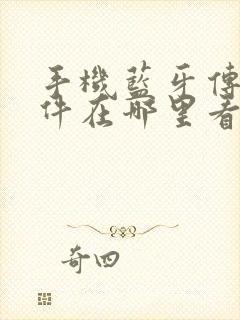 手機藍牙傳
件在哪里看
奇四